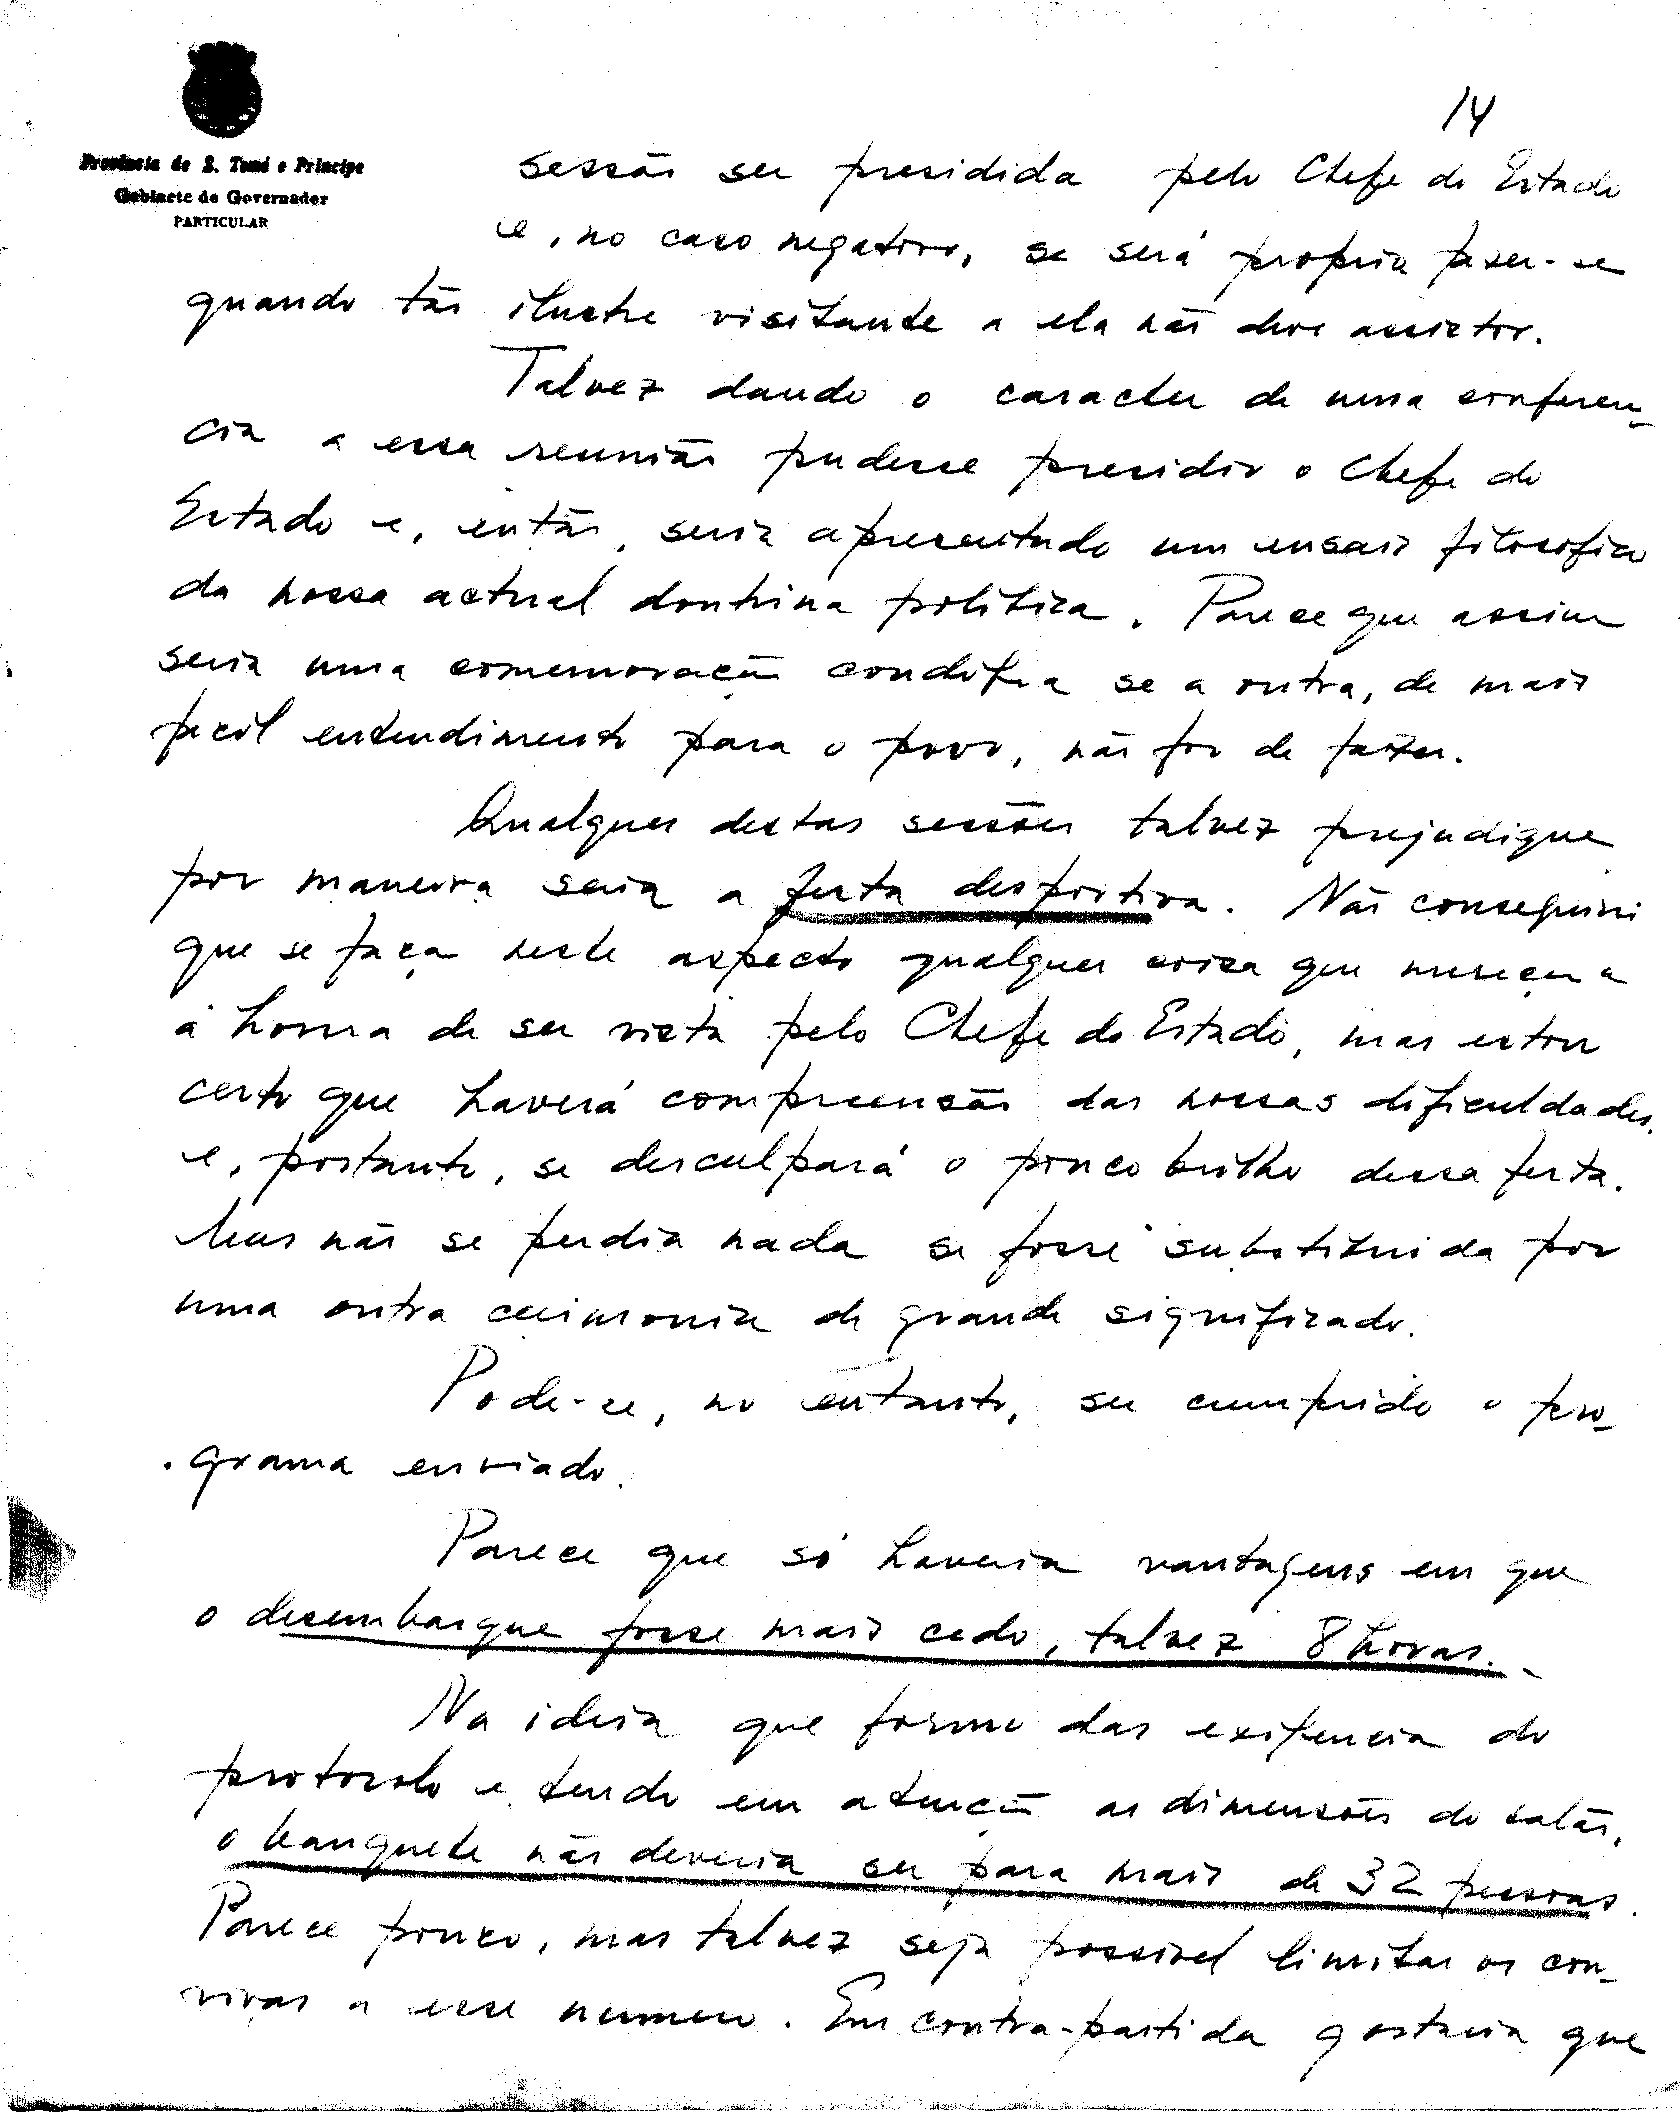 14
Provincia de S. Tomé e Principe
Gabinete do Governador
PARTICULAR
sessão ser presidida pelo Chefe do Estado
e, no caso negativo, se será propria fazer-se
quando tão ilustre visitante a ela não deve assistir.
Talvez dando o caracter de uma conferen-
cia a essa reunião pudesse presidir o Chefe do
Estado e, então, seria apresentado um ensaio filosofico
da nossa actual doutrina politica. Parece que assim
seria uma comemoração condigna se a outra, de mais
facil entendimento para o povo, não for de fazer.
Qualquer destas sessões talvez prejudique
por maneira seria a festa desportiva. Não consegui
que se faça neste aspecto qualquer coisa que mereça
a honra de ser vista pelo Chefe do Estado, mas estou
certo que haverá compreensão das nossas dificuldades
e, portanto, se desculpará o pouco brilho dessa festa.
Mas não se perdia nada se fosse substituida por
uma outra cerimonia de grande significado.
Pode-se, no entanto, ser cumprido o pro-
grama enviado.
Parece que só haveria vantagens em que
o desembarque fosse mais cedo, talvez 8 horas.
Na ideia que formo das exigencia do
protocolo e tendo em atenção as dimensões do salão,
o banquete não deveria ser para mais de 32 pessoas.
Parece pouco, mas talvez seja possivel limitar os con-
vivas a esse numero. Em contra-partida gostaria que